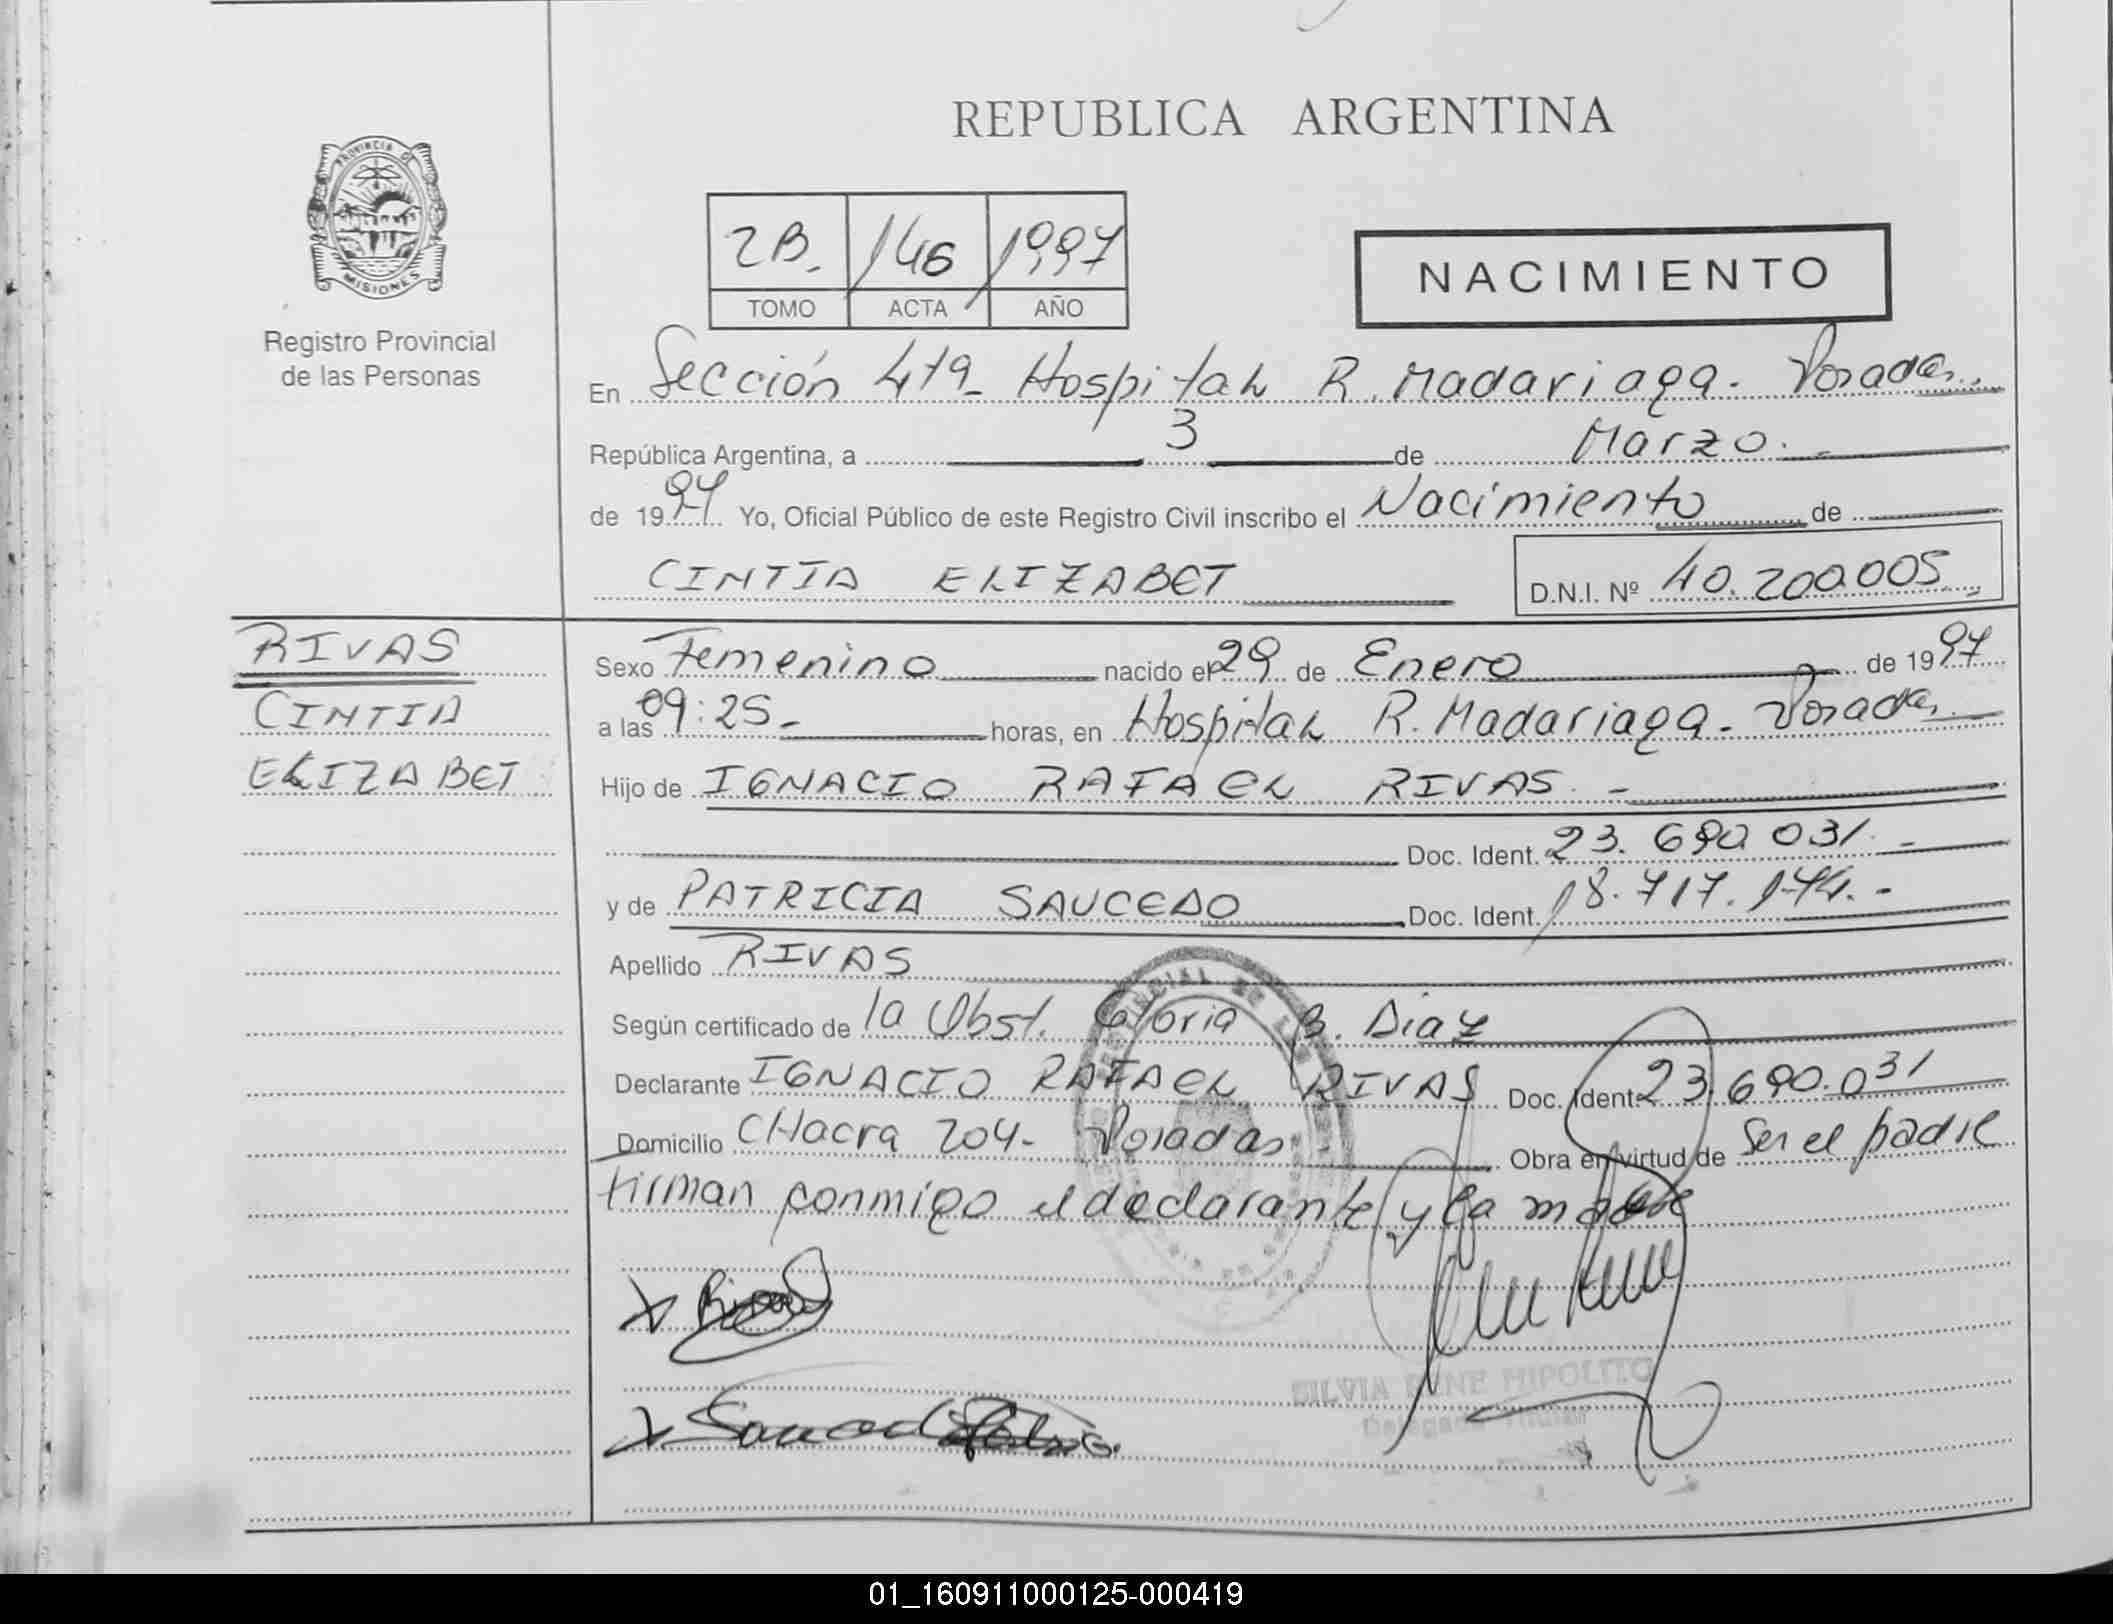 REPUBLICA ARGENTINA
PROVINCIA DE
MISIONES
Registro Provincial
de las Personas
2B. 146 1997
TOMO ACTA AÑO
NACIMIENTO
En Sección 4ta- Hospital R. Madariaga. Posadas.
República Argentina, a 3 de Marzo.
de 1997 Yo, Oficial Público de este Registro Civil inscribo el Nacimiento de
CINTIA ELIZABET D.N.I. Nº 40.200.005
RIVAS
CINTIA
ELIZABET
Sexo Femenino nacido el 29 de Enero de 1997
a las 09:25- horas, en Hospital R. Madariaga- Posadas
Hijo de IGNACIO RAFAEL RIVAS. -
Doc. Ident. 23.690.031.-
y de PATRICIA SAUCEDO Doc. Ident. 18.717.174.-
Apellido RIVAS
Según certificado de la Obst. Gloria B. Diaz
Declarante IGNACIO RAFAEL RIVAS Doc. Ident. 23.690.031
Domicilio CHacra 204- Posadas Obra en virtud de Ser el padre
firman conmigo el declarante y la madre
SILVIA RENE HIPOLITO
Delegada Titular
01_160911000125-000419